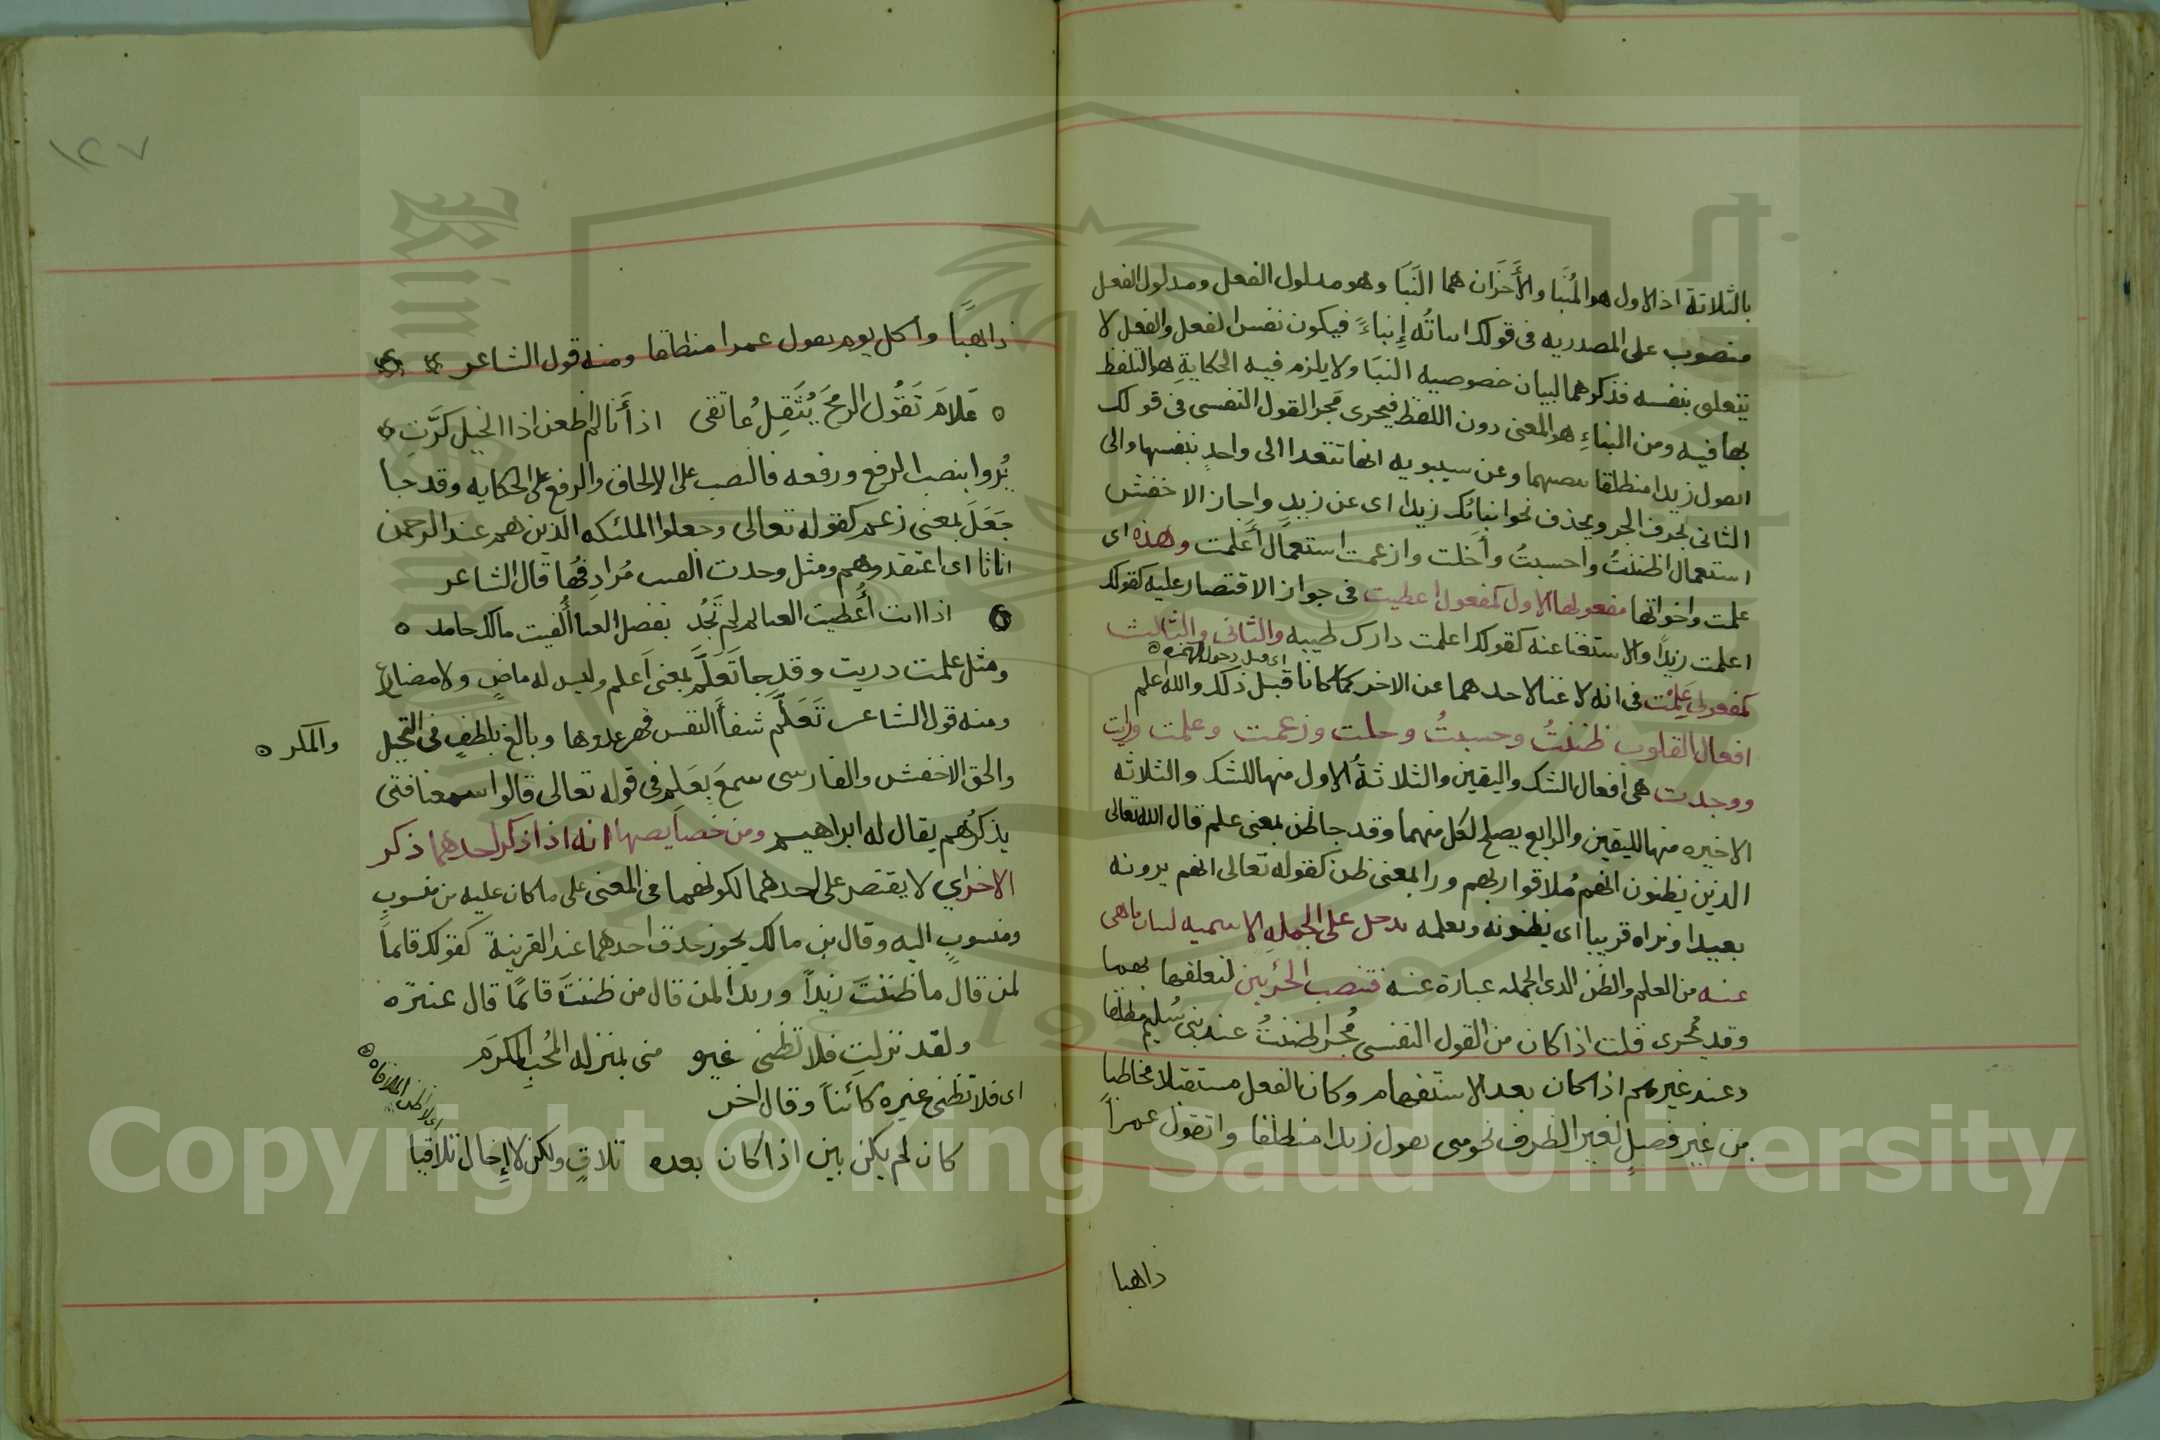 بالثلاثة اذ الاول هو المُنَبَا والأَخَرَان هما النَبَا وهو مدلول الفعل ومدلول الفعل
منصوب على المصدريه فى قولك انباتُه إِنباءً فيكون نفس الفعل والفعل لا
يتعلق بنفسه فذكرهما لبيان خصوصيه النبَا ولا يلزم فيه الحكايةِ هو التلفظ
بها فيه ومن البناءِ هو المعنى دون اللفظ فيجرى مجرا القول النفسى فى قولك
اتقول زيدا منطلقا بنصبهما وعن سيبويه انها تتعدا الى واحدٍ بنفسها والى
الثانى بحرف الجر ويحذف نحو انباتك زيدا اى عن زيدٍ واجاز الاخفش
استعمال اظننتُ واحسبتُ وأَخلت وازعمت استعمال أَعلمت وهذه اى
علمت واخواتها مفعولها الاول كمفعول اعطيت فى جواز الاقتصار عليه كقولك
اعلمت زيدًا والاستغنا عنه كقولك اعلمت دارك طيبه والثانى والثالث
اى قبل دخول الهمزه
كمفعولى عَلِمْت فى انه لا غنا لاحدهما عن الاخر كما كانا قبل ذلك والله اعلم
افعال القلوب ظننتُ وحسبتُ وخلت وزعمت وعلمت ورايت
ووجدت هى افعال الشك واليقين والثلاثةُ الاول منها للشك والثلاثه
الاخيره منها لليقين والرابع يصلح لكل منهما وقد جا ظن بمعنى علم قال الله تعالى
الذين يظنون انهم مُلاقوا ربهم ورا بمعنى ظن كقوله تعالى انهم يرونه
بعيدا ونراه قريبا اى يظنونه ونعلمه تدخل على الجملهِ الاسميه لبيان ما هى
عنه من العلم والظن الذى الجمله عبارة عنه فتنصب الجزئين لتعلقها بهما
وقد يُجرى قلت اذا كان من القول النفسى مُجرا ظننتُ عند بنى سُليم مطلقا
وعند غيرهم اذا كان بعد الاستفهام وكان الفعل مستقبلا مخاطبا
من غير فصلٍ لغير الظرف نحو متى تقول زيدا منطلقا واتقول عمراً
ذاهبا
١٢٧
ذاهبًا وأكل يوم تقول عمرا منطلقا ومنه قول الشاعر
عَلامَ تَقُول الرمحَ يُثَقِلُ عاتقى اذ أَنا لم اطعن اذا الخيل كرَّتِ
يُروا بنصب الرفع ورفعه فالنصب على الالحاق والرفع على الحكايه وقد جا
جَعَلَ بمعنى زعم كقوله تعالى وجعلوا الملئكه الذين هم عند الرحمن
اناثا اى اعتقدوهم ومثل وجدت الفيت مُرادِفُها قال الشاعر
اذا انت أُعطيت الغنا ثم لم تَجُد بفضل الغنا أُلفيت مالك حامد
ومثل علمت دريت وقد جا تَعَلَّم بمعنى اَعلم وليس له ماضٍ ولا مضارع
ومنه قول الشاعر تَعَلَّم شفأ النفس قهر عدوها وبالغ بلطفٍ فى التحيل
والمكر
والحق الاخفش والفارسى سمعَ بِعَلِم فى قوله تعالى قالوا سمعنا فتى
يذكرُهم يقال له ابراهيم ومن خصايصها انه اذا ذكر احدهما ذكر
الاخر اي لا يقتصر على احدهما لكونهما فى المعنى على ما كان عليه من منسوبٍ
ومنسوبٍ اليه وقال بن مالك يجوز حذف احدهما عند القرينة كقولك قايماً
لمن قال ما ظننتَ زيداً وزيدا لمن قال من ظننتَ قائمًا قال عنتره
ولقد نزلتِ فلا تظنى غيره منى بمنزله المُحَبِ المكرَم
اى فلا تظنى غيره كائناً وقال اخر
كان لم يكن بين اذا كان بعده تلاقٍ ولكن لا إِخال تلاقيا
Copyright © King Saud University
King Saud University
1957